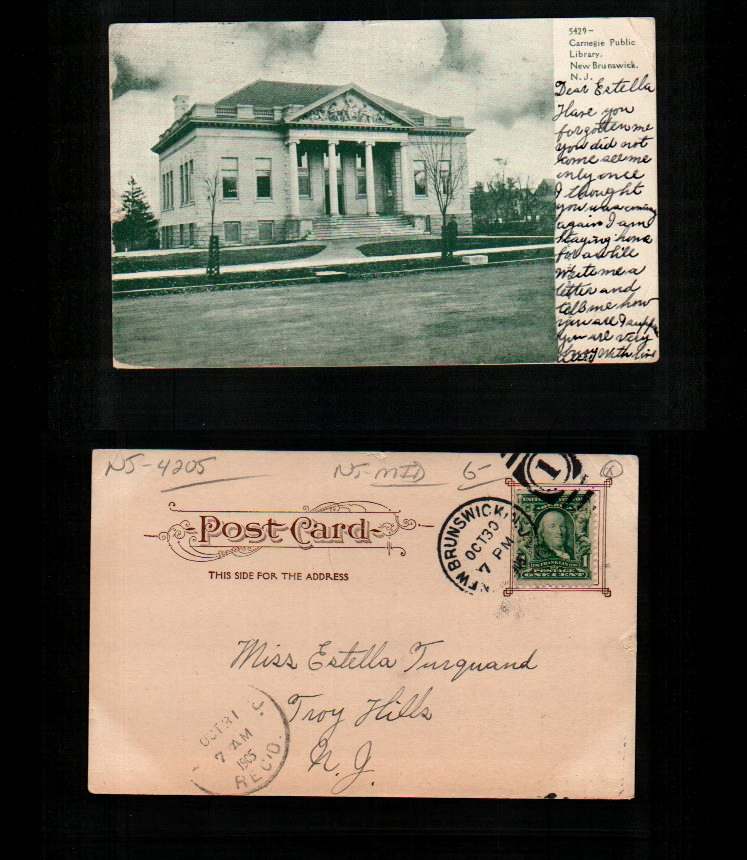 5429-
Carnegie Public
Library.
New Brunswick.
N. J.
Dear Estella
Have you
forgotten me
you did not
come see me
only once
I thought
you was coming
again I am
staying home
for awhile
Write me a
letter and
tell me how
you are I suppose
you are very
busy With love
N5-4205
N5-MID
5-
1
POST CARD
THIS SIDE FOR THE ADDRESS
NEW BRUNSWICK, N.J.
OCT 30
7 PM
POSTAGE
ONE CENT
1
Miss Estella Turquand
Troy Hills
N. J.
OCT 31
7 AM
1905
REC'D.